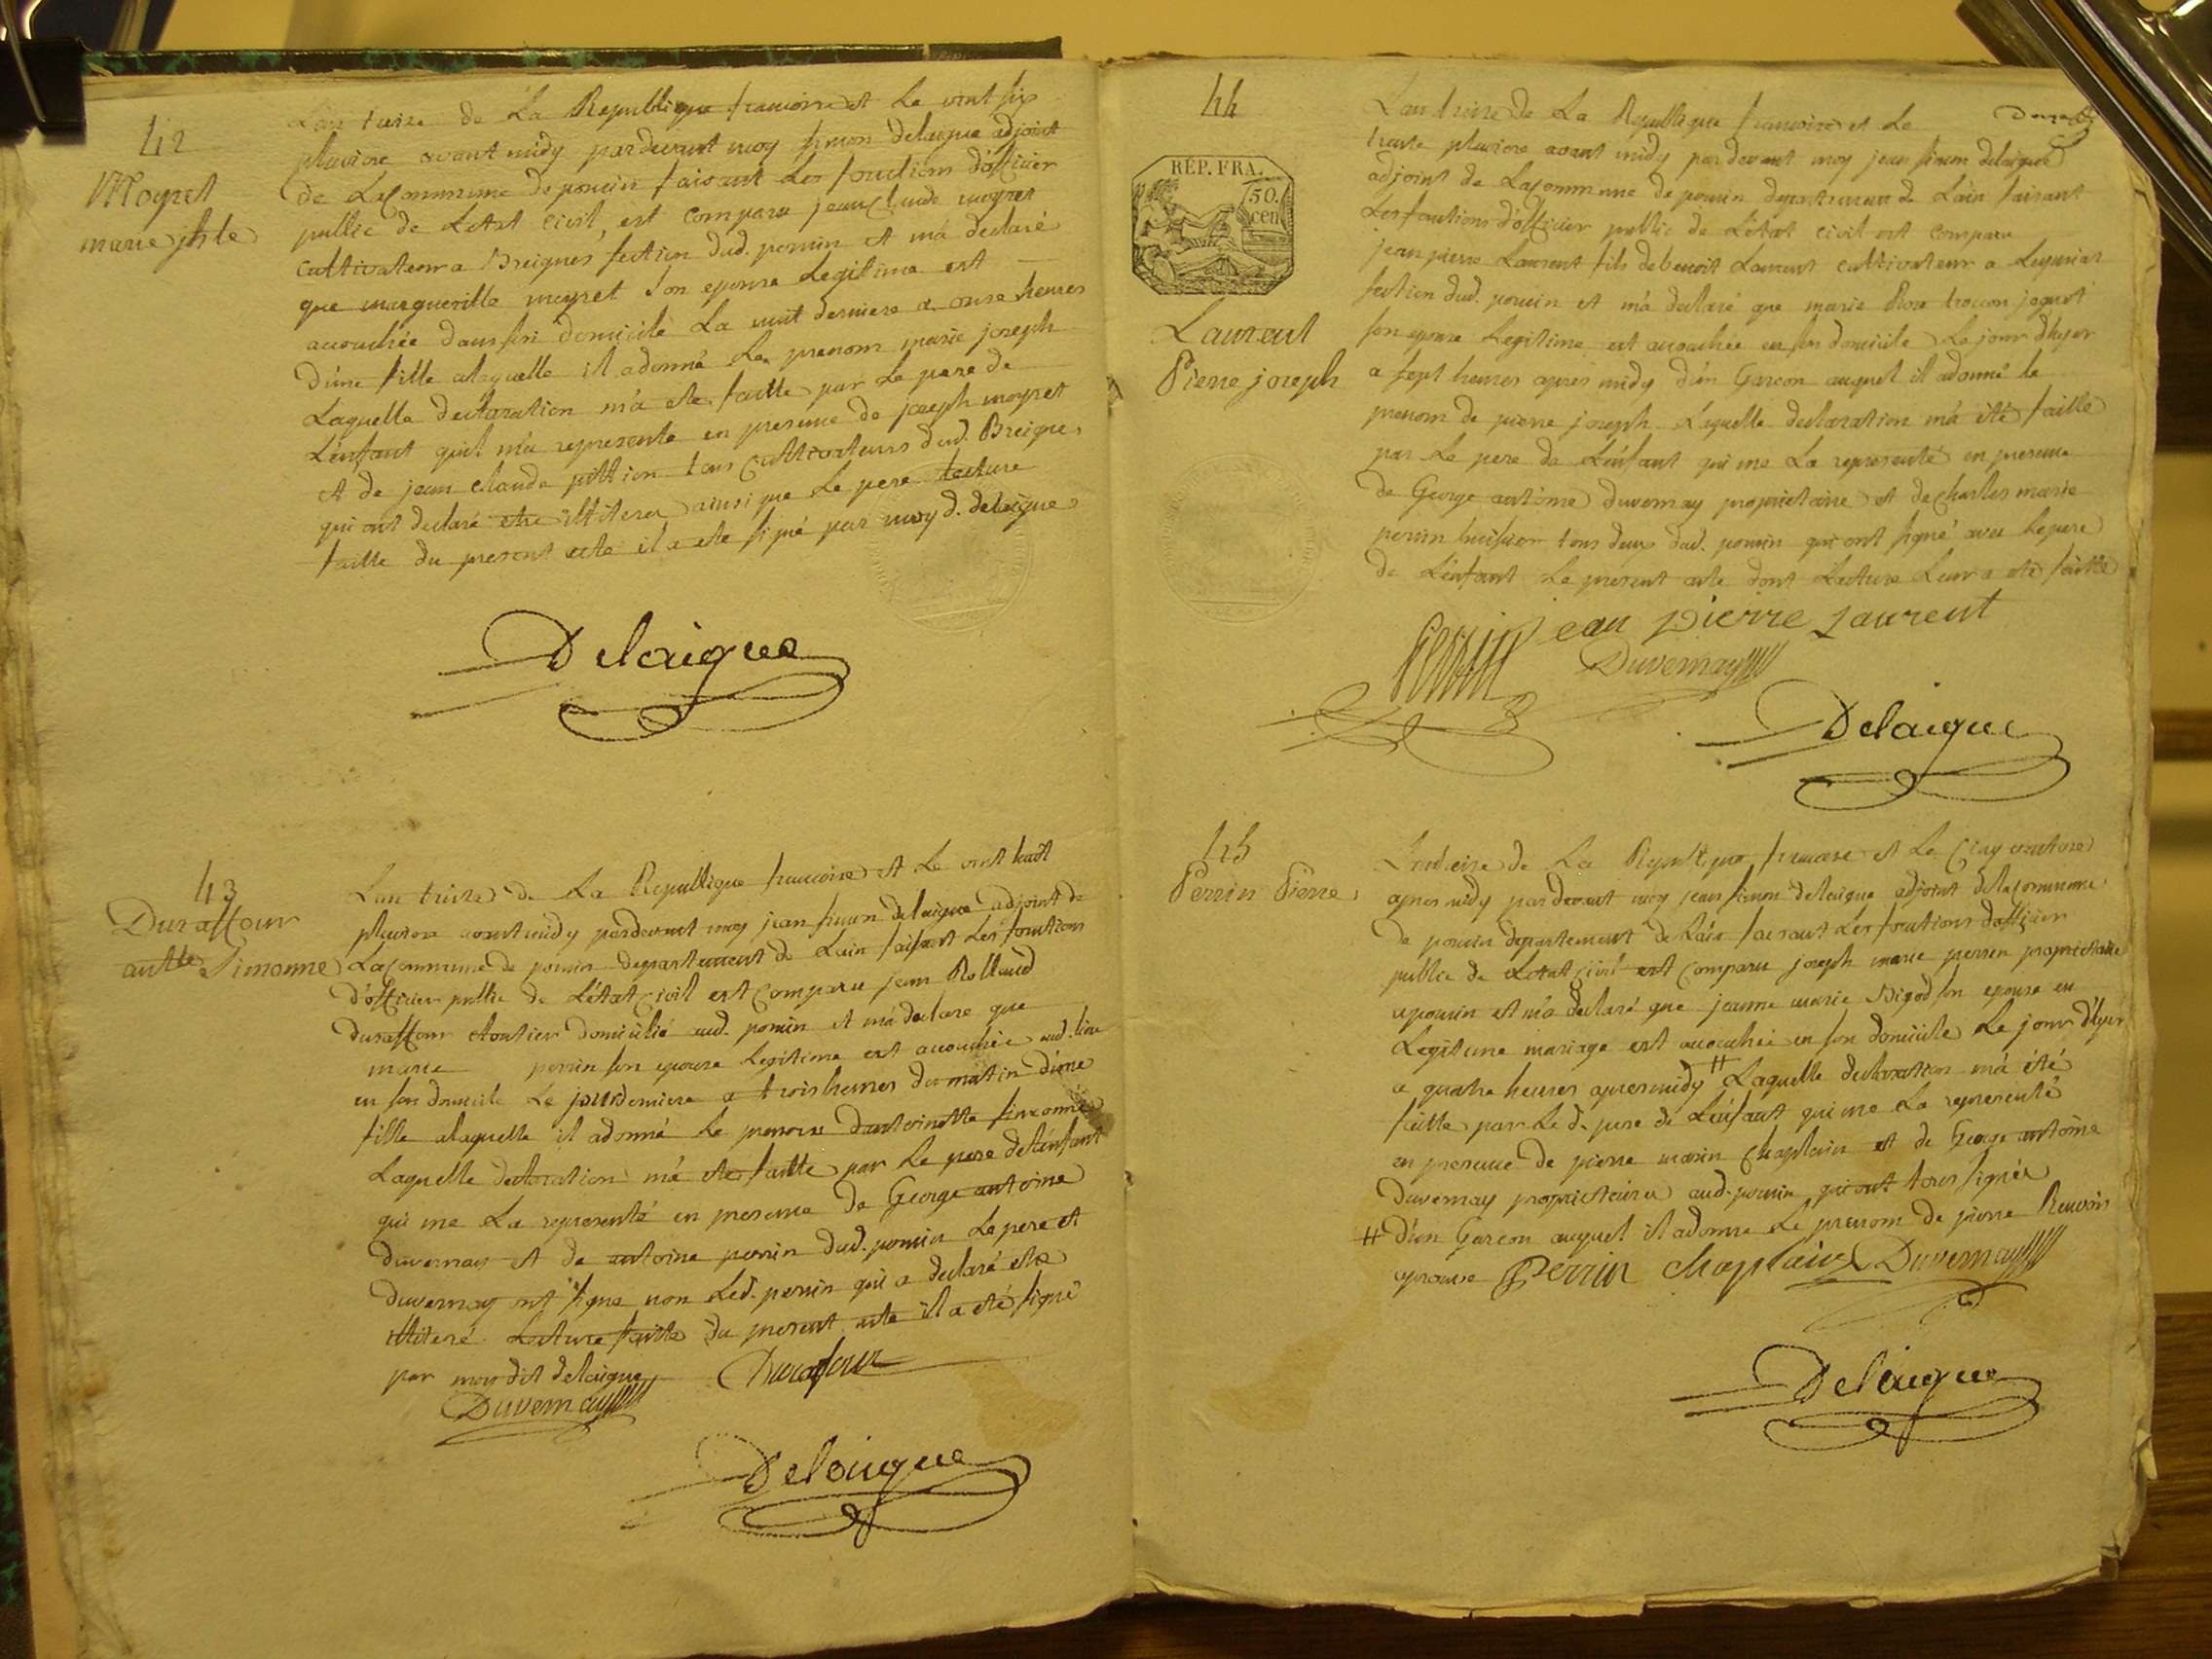 42
Moyret
marie jphte
L'an treize de La Republique francoise et Le vint six
pluviose avant midy pardevant moy simon delaigue adjoint
de La Commune de poncin faisant Les fonctions d'officier
public de L'etat Civil, est comparu jean Claude moyret
Cultivateur a Breignes section dud. poncin et m'a declaré
que margueritte moyret son epouse Legitime est
accouchée dans son domicile La nuit derniere a onze heures
d'une fille alaquelle il a donné Le prenom marie joseph
Laquelle declaration m'a ete faitte par Le pere de
L'enfant quil m'a represente en presence de joseph moyret
et de jean claude pittion tous Cultivateurs dud. Breignes
qui ont declaré etre illiteres ainsi que Le pere lecture
faitte du present acte il a ete signé par moy d. delaigue
Delaigue
43
Duraffour
antte Simonne
L'an treize de La Republique francoise et Le vint huit
pluviose avant midy pardevant moy jean simon delaigue adjoint de
La Commune de poncin departement de Lain faisant Les fonctions
d'officier public de L'état Civil est Comparu jean Rolland
duraffour cloutier domicilié aud. poncin et m'a declare que
marie perrin son epouse Legitime est accouchée aud. lieu
en son domicile Le jour derniere a trois heures du matin d'une
fille alaquelle il adonné Le prenom d'antoinette simonne
Laquelle declaration m'a ete faitte par Le pere de L'enfant
qui me La representé en presence de George antoine
duvernay et de antoine perrin dud. poncin Le pere et
duvernay ont signe non Led. perrin qui a declaré etre
illiteré Lecture faitte du present acte il a eté signé
par moy dit delaigue Duraffour
Duvernay
Delaigue
44
RÉP. FRA.
50.
cen
Laurent
Pierre joseph
L'an treize de La Republique francoise et Le
trente pluviose avant midy pardevant moy jean simon delaigue
adjoint de La Commune de poncin departement de Lain faisant
Les fonctions d'officier public de L'état civil est comparu
jean pierre Laurent fils de benoit Laurent cultivateur a
section dud. poncin et m'a declaré que marie Rose
son epouse Legitime est accouchée en son domicile Le jour d'hyer
a sept heures apres midy d'un Garcon auquel il adonné le
prenom de pierre joseph Laquelle declaration m'a été faitte
par Le pere de L'enfant qui me La representé en presence
de George antoine duvernay proprietaire et de charles marie
perrin huissier tous deux dud. poncin qui ont signé avec Le pere
de L'enfant Le present acte dont Lecture Leur a eté faitte
Perrin Jean Pierre Laurent
Duvernay
Delaigue
45
Perrin Pierre
L'an treize de La Republique francoise et Le Cinq ventose
apres midy pardevant moy jean simon delaigue adjoint de la commune
de poncin departement de Lain faisant Les fonctions d'officier
public de L'etat Civil est Comparu joseph marie perrin proprietaire
a poncin et m'a declaré que jeanne marie Bigod son epouse en
Legitime mariage est accouchée en son domicile Le jour d'hyer
a quatre heures apresmidy # Laquelle declaration m'a été
faitte par Le d. pere de L'enfant qui me La representé
en presence de pierre marin Chaplain et de George antoine
duvernay proprietaires aud. poncin qui ont tous signés
# d'un Garcon auquel il adonne Le prenom de pierre Renvoi
aprouve Perrin Chaplain Duvernay
Delaigue